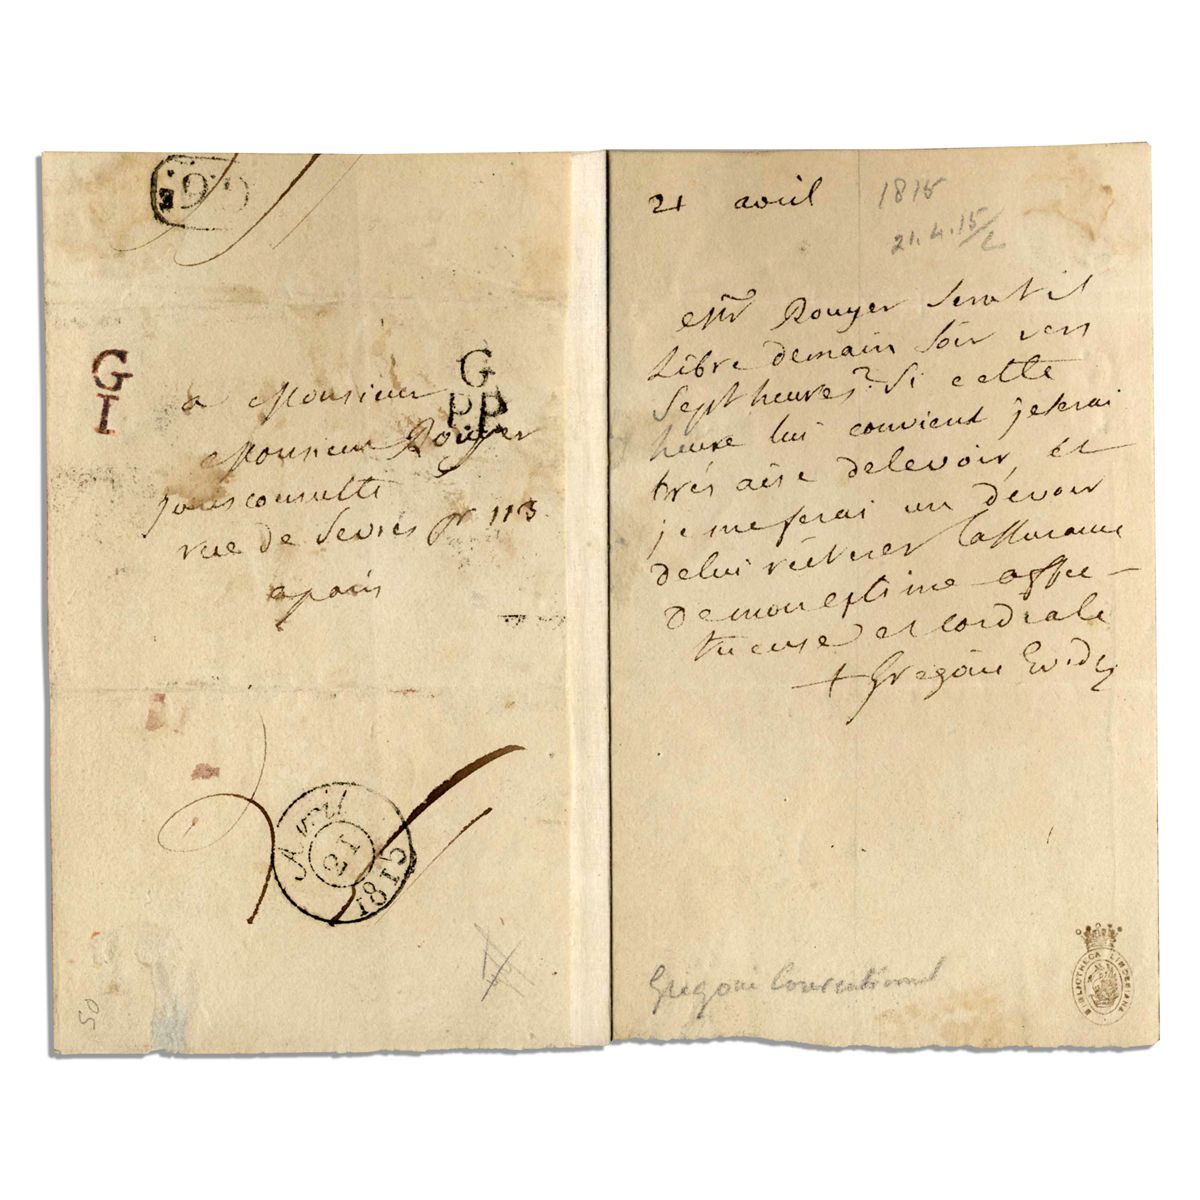 G
I
G
PP
a Monsieur
Monsieur Rouyer
jurisconsulte
rue de Sevres nº 113
a paris
Avril
21
1815
50
21 avril 1815
21.4.15/
Mr Rouyer Serat il
Libre demain Soir vers
Sept heures? Si cette
heure lui convient je serai
très aise de le voir, et
je me ferai un devoir
de lui réiterer l'assurance
de mon estime affec-
tueuse et cordiale
+ Grégoire
Grégoire Conventionnel
BIBLIOTHECA LINDESIANA